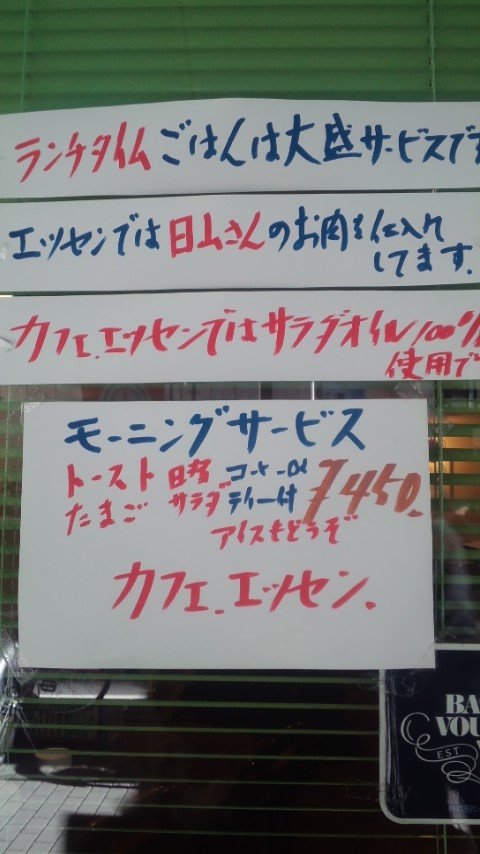 ランチタイムごはんは大盛サービスです
エッセンでは日山さんのお肉を仕入れ
してます.
カフェ.エッセンではサラダオイル100%
使用です
モーニングサービス
トースト 日替 コーヒーor
たまご サラダ ティー付 450.
アイスもどうぞ
カフェ.エッセン.
BA
VOU
EST